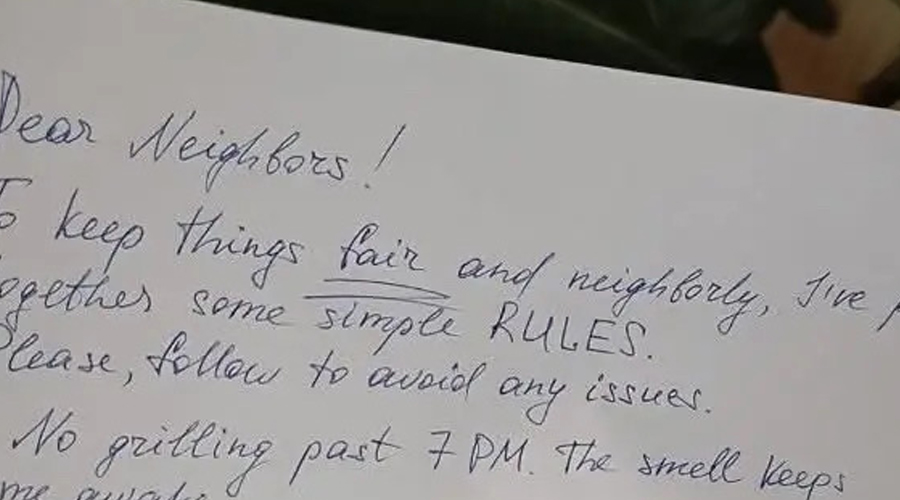 Dear Neighbors!
To keep things fair and neighborly, I've
together some simple RULES.
Please, follow to avoid any issues.
No grilling past 7 PM. The smell keeps
me awake